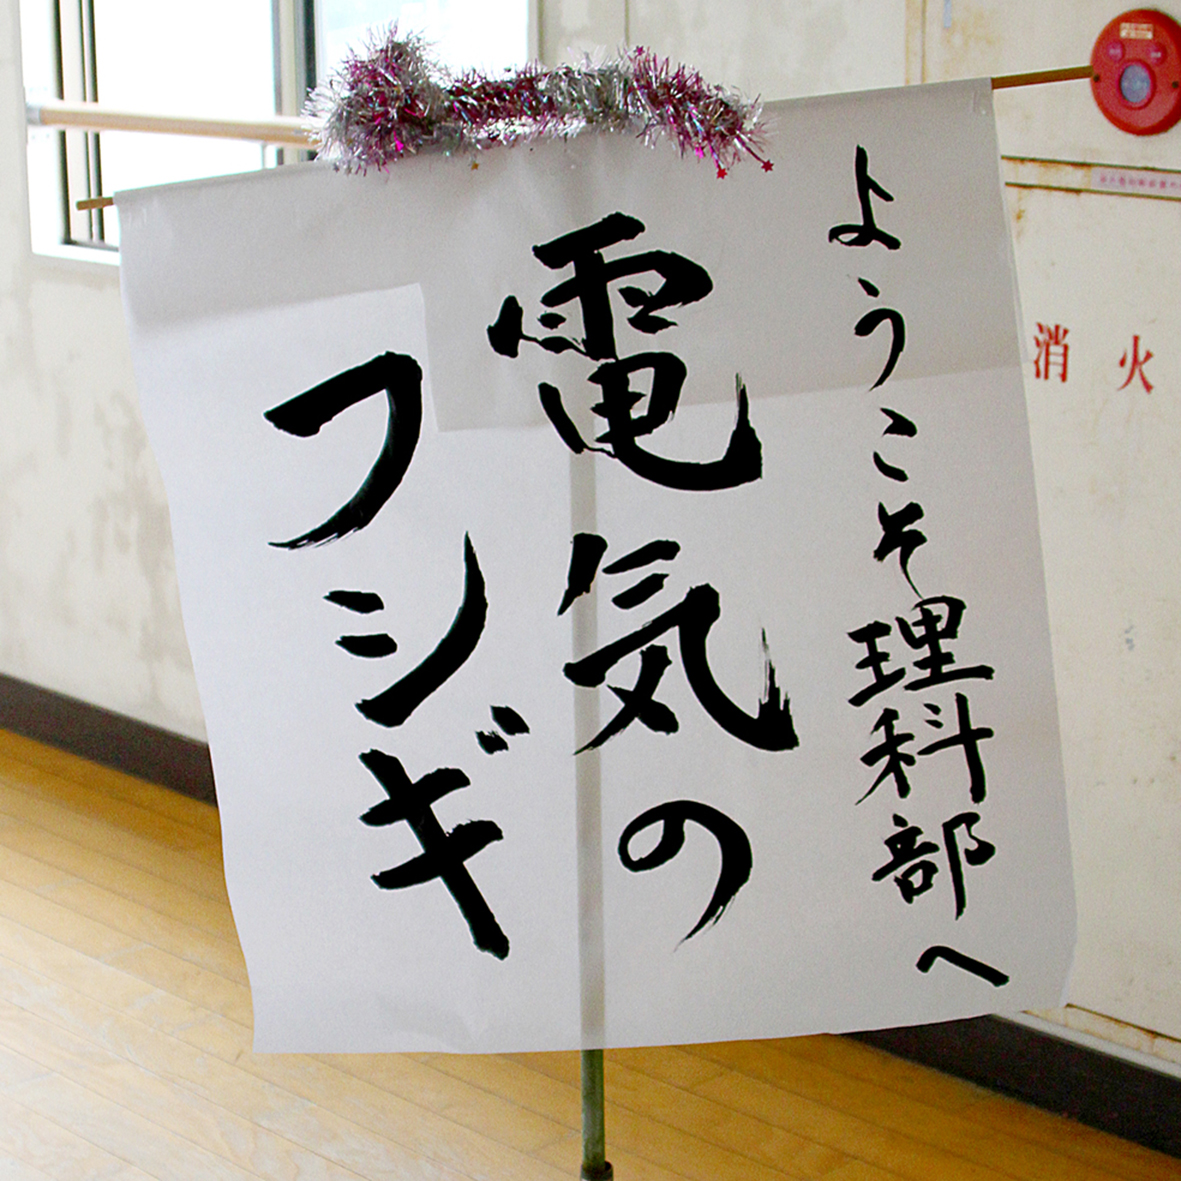 ようこそ理科部へ
電気の
フシギ
消火